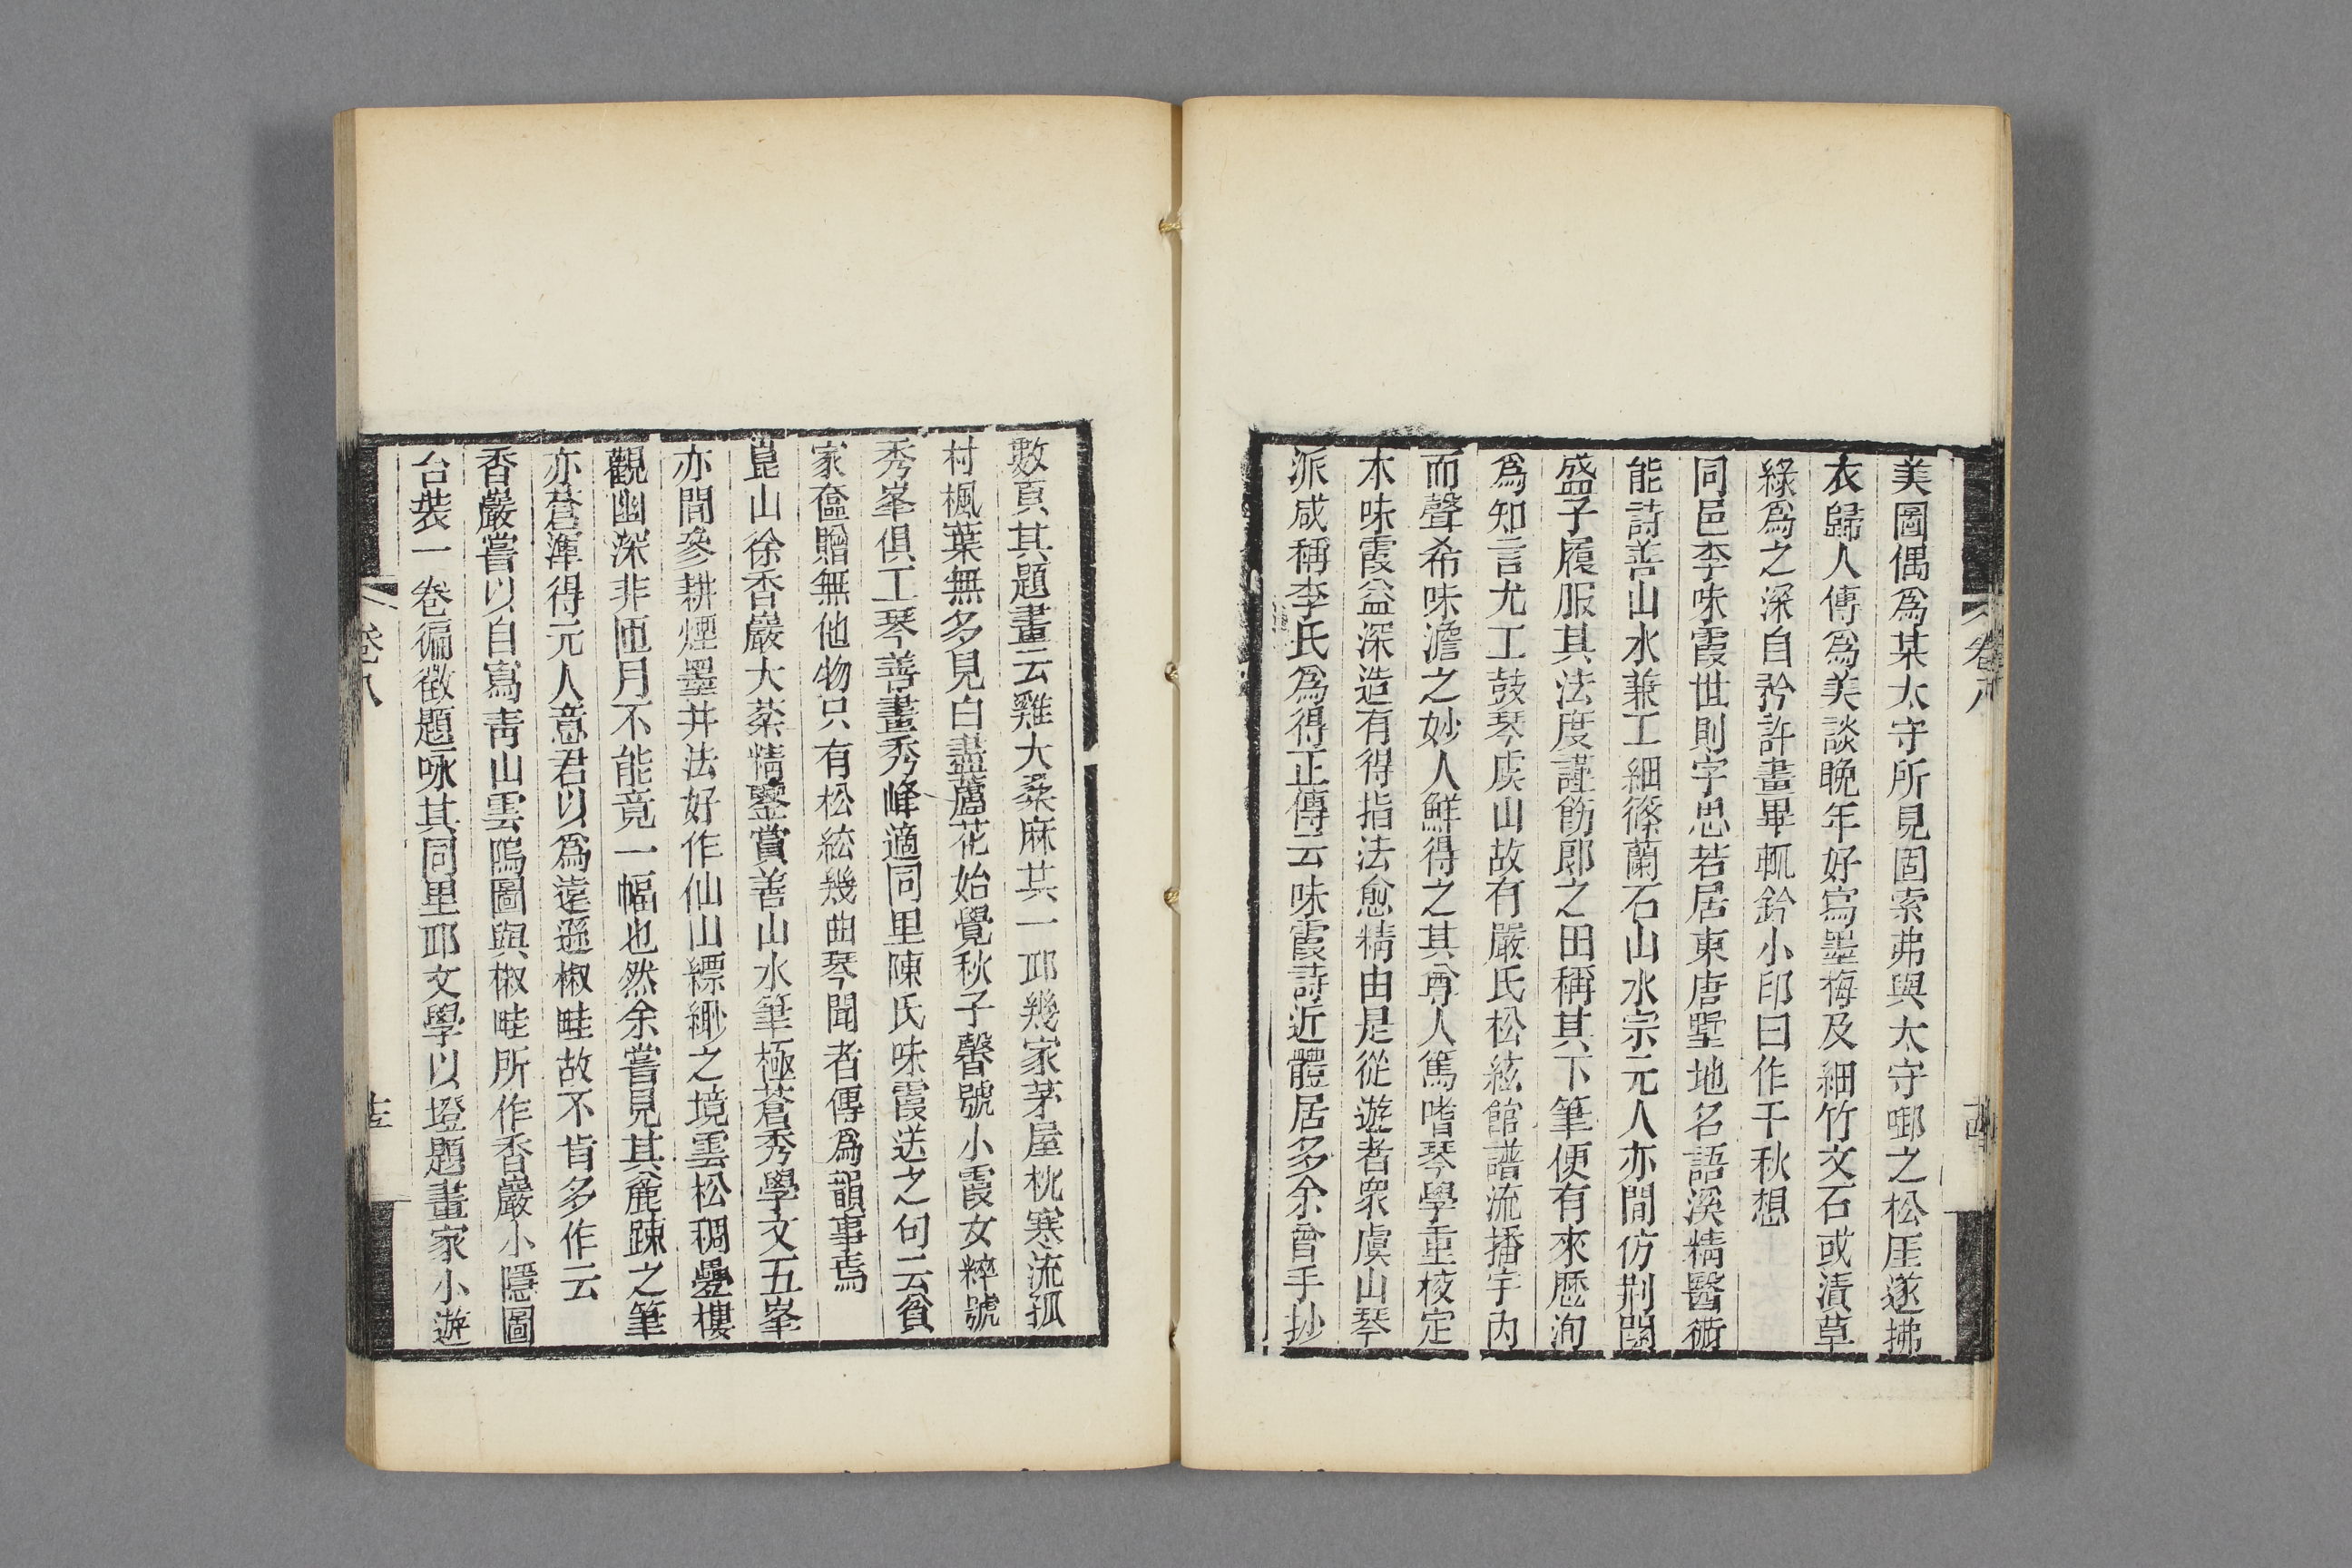 美圖偶爲某太守所見固索弗與太守啣之松厓遂拂
衣歸人傳爲美談晚年好寫墨梅及細竹文石或漬草
綠爲之深自矜許畫畢輒鈐小印曰作千秋想
同邑李味霞世則字思若居東唐墅地名語溪精醫術
能詩善山水兼工細篠蘭石山水宗元人亦閒仿荆關
盛子履服其法度謹飭郎之田稱其下筆便有來歷洵
爲知言尤工鼓琴虞山故有嚴氏松絃館譜流播宇內
而聲希味澹之妙人鮮得之其尊人篤嗜琴學重校定
本味霞益深造有得指法愈精由是從遊者衆虞山琴
派咸稱李氏爲得正傳云味霞詩近體居多余曾手抄
卷八
古
數頁其題畫云雞犬桑麻共一邱幾家茅屋枕寒流孤
村楓葉無多見白盡蘆花始覺秋子馨號小霞女粹號
秀峯俱工琴善畫秀峰適同里陳氏味霞送之句云貧
家奩贈無他物只有松絃幾曲琴聞者傳爲韻事焉
崑山徐香巖大棻精鑒賞善山水筆極蒼秀學文五峯
亦閒參耕煙墨井法好作仙山縹緲之境雲松稠疊樓
觀幽深非匝月不能竟一幅也然余嘗見其麄疎之筆
亦蒼渾得元人意君以爲遠遜椒畦故不肯多作云
香巖嘗以自寫靑山雲隖圖與椒畦所作香巖小隱圖
合裝一卷徧徵題咏其同里邱文學以墱題畫家小遊
卷八